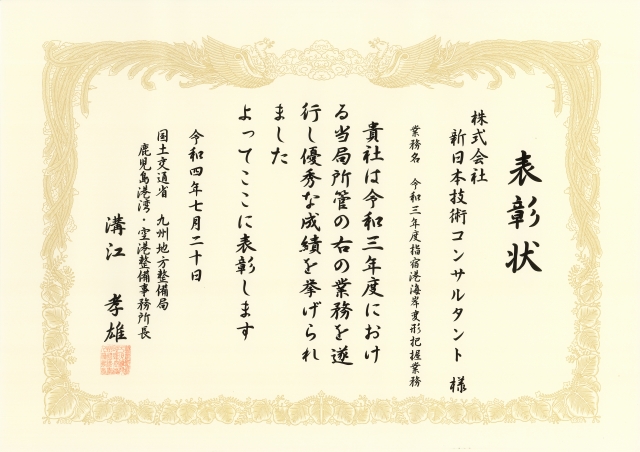 表彰状
株式会社
新日本技術コンサルタント 様
業務名 令和三年度指宿港海岸変形把握業務
貴社は令和三年度におけ
る当局所管の右の業務を遂
行し優秀な成績を挙げられ
ました
よってここに表彰します
令和四年七月二十日
国土交通省 九州地方整備局
鹿児島港湾・空港整備事務所長
溝江 孝雄